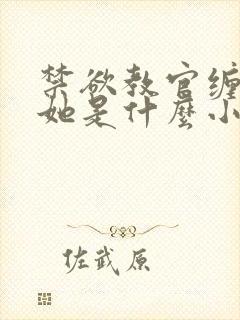 禁欲教官缠
她是什麼小
佐武原